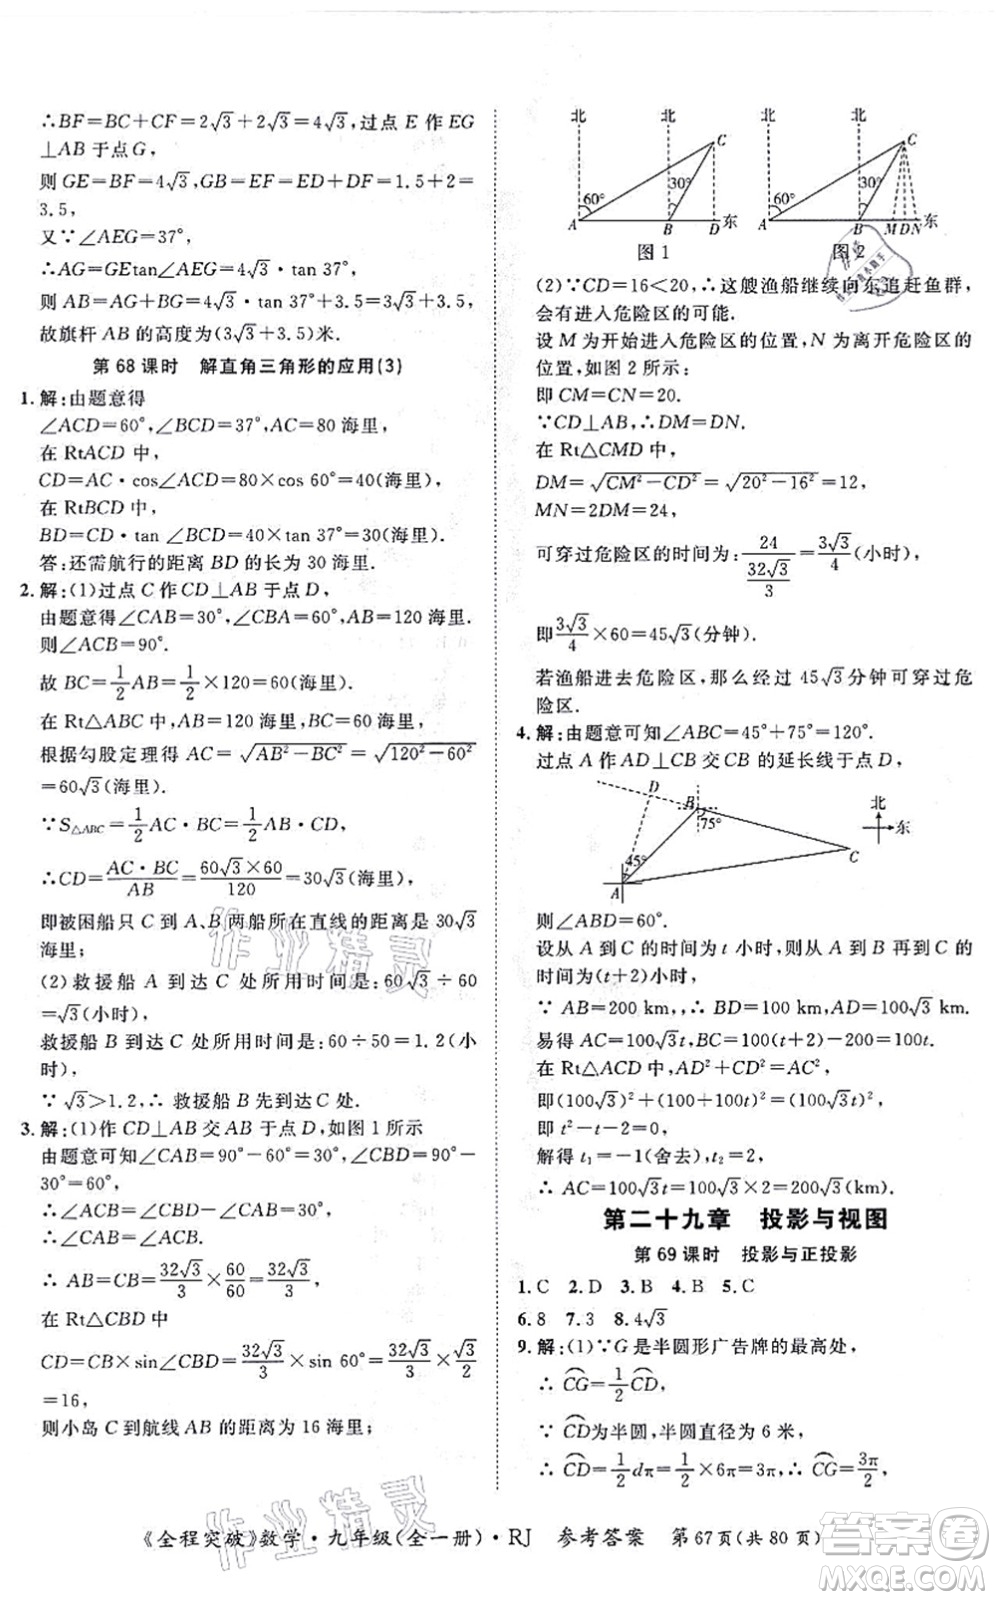 ∴BF=BC+CF=2√3+2√3=4√3,过点 E 作 EG
⊥AB 于点 G,
则 GE=BF=4√3,GB=EF=ED+DF=1.5+2=
3.5,
又∵∠AEG=37°,
∴AG=GEtan∠AEG=4√3·tan 37°,
则 AB=AG+BG=4√3×0.75+3.5=3√3+3.5,
故旗杆 AB 的高度为(3√3+3.5)米.
第 68 课时 解直角三角形的应用(3)
1.解:由题意得
∠ACD=60°,∠BCD=37°,AC=80 海里,
在 RtACD 中,
CD=AC·cos∠ACD=80×cos 60°=40(海里),
在 RtBCD 中,
BD=CD·tan ∠BCD=40×tan 37°=30(海里).
答:还需航行的距离 BD 的长为 30 海里.
2.解:(1)过点 C 作 CD⊥AB 于点 D,
由题意得∠CAB=30°,∠CBA=60°,AB=120 海里.
则∠ACB=90°.
故 BC=1/2AB=1/2×120=60(海里).
在 Rt△ABC 中,AB=120 海里,BC=60(海里),
根据勾股定理得 AC=√(AB²−BC²)=√(120²−60²)
=60√3(海里).
∵S△ABC=1/2AC·BC=1/2AB·CD,
∴CD=AC·BC/AB=60√3×60/120=30√3(海里).
即被困船只 C 到 A、B 两船所在直线的距离是 30√3
海里;
(2)救援船 A 到达 C 处所用时间是:60√3÷60
=√3(小时),
救援船 B 到达 C 处所用时间是:60÷50=1.2(小
时),
∵√3>1.2,∴救援船 B 先到达 C 处.
3.解:(1)作 CD⊥AB 交 AB 于点 D,如图 1 所示
由题意可知∠CAB=90°−60°=30°,∠CBD=90°−
30°=60°,
∴∠ACB=30°,
∴∠ACB=∠CAB,
∴AB=CB=32√3/3×60/60=32√3/3(海里),
在 Rt△CBD 中,
CD=CB×sin∠CBD=32√3/3×sin 60°=32√3/3×√3/2
=16,
则小岛 C 到航线 AB 的距离为 16 海里;
北 北 北 北
C C
60° 30° 60° 30°
A B D 东 A B M D N 东
图 1 图 2
(2)∵CD=16<20,∴这艘渔船继续向东追赶鱼群,
会有进入危险区的可能.
设 M 为开始进入危险区的位置,N 为离开危险区的位
置,如图 2 所示:
即 CM=CN=20.
∵CD⊥AB,∴DM=DN.
在 Rt△CMD 中,
DM=√(CM²−CD²)=√(20²−16²)=12,
MN=2DM=24,
可穿过危险区的时间为:24/(32√3/3)=3√3/4(小时),
即3√3/4×60=45√3(分钟).
若渔船进去危险区,经过 45√3 分钟可穿过危
险区.
4.解:由题意可知∠ABC=45°+75°=120°.
过点 A 作 AD⊥CB 交 CB 的延长线于点 D,
D B 75° 北 东
45° C
A
则∠ABD=60°.
设从 A 到 C 的时间为 t 小时,则从 A 到 B 再到 C 的
时间为(t+2)小时,
∵AB=200 km,,∴BD=100 km,AD=100√3 km,
易得 AC=100√3t,BC=100t.
在 Rt△ACD 中,AD²+CD²=AC²,
即(100√3)²+(100+100t)²=(100√3t)²,
即 t²−t−2=0,
解得 t₁=−1(舍去),t₂=2,
∴AC=100√3t=100√3×2=200√3(km).
第二十九章 投影与视图
第 69 课时 投影与正投影
1.C 2.D 3.B 4.B 5.C
6.8 7.3 8.4√3
9.解:(1)∵G 是半圆形广告牌的最高处,
∴C͡G=1/2C͡D,
∵C͡D为半圆,半圆直径为 6 米,
∴C͡D=1/2dπ=1/2×6π=3π(米),∴C͡G=3π/2
《全程突破》数学·九年级(全一册)·RJ 参考答案 第 67 页(共 80 页)
作业精灵
作业精灵
作业帮
MXQE.COM